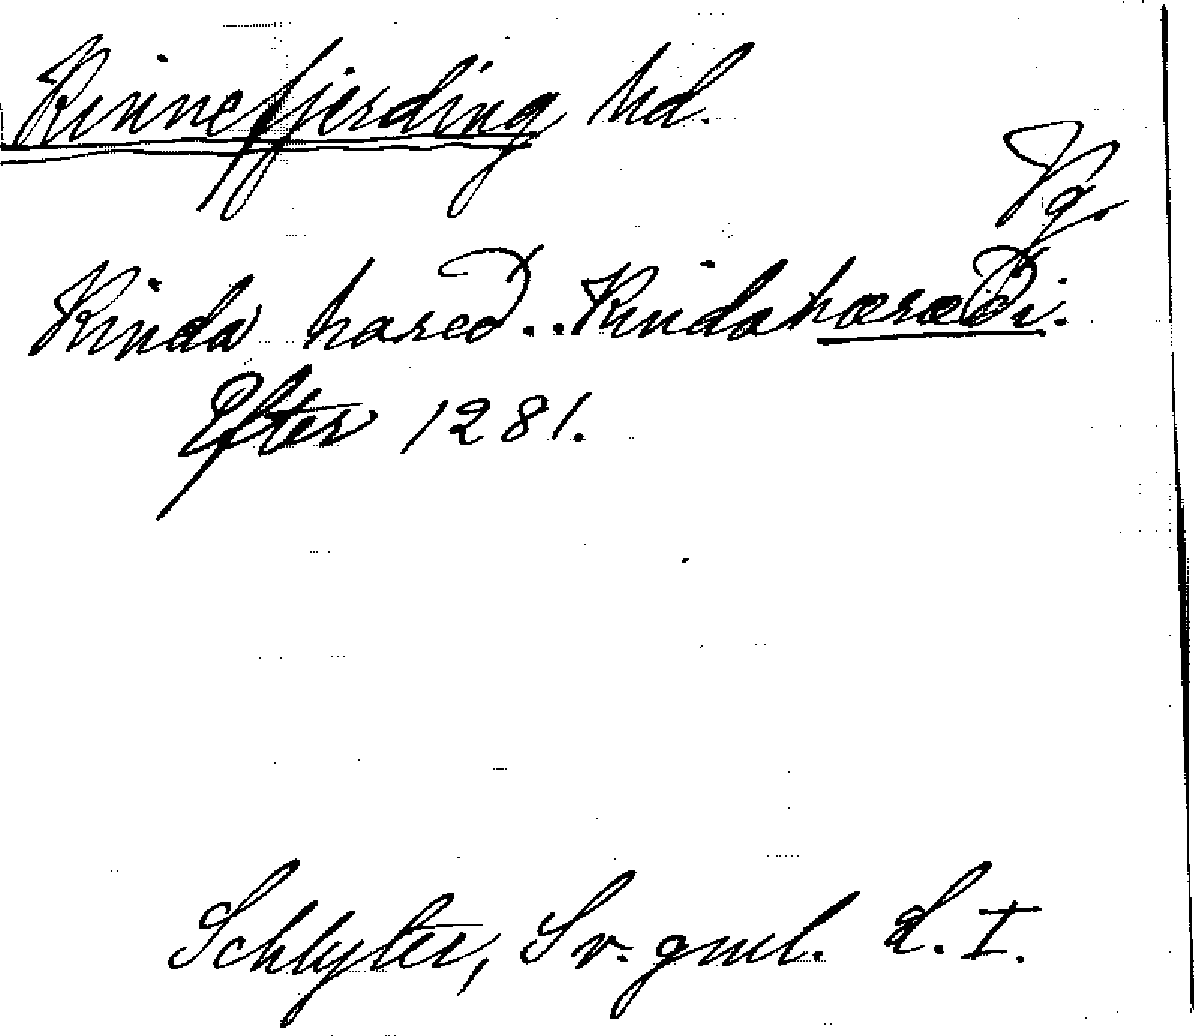 Kinnefjerding hd.
Vg.
Kinda hared. . Kindahæræði.
Efter 1281.
Schlyter, Sv. gml. L. I.